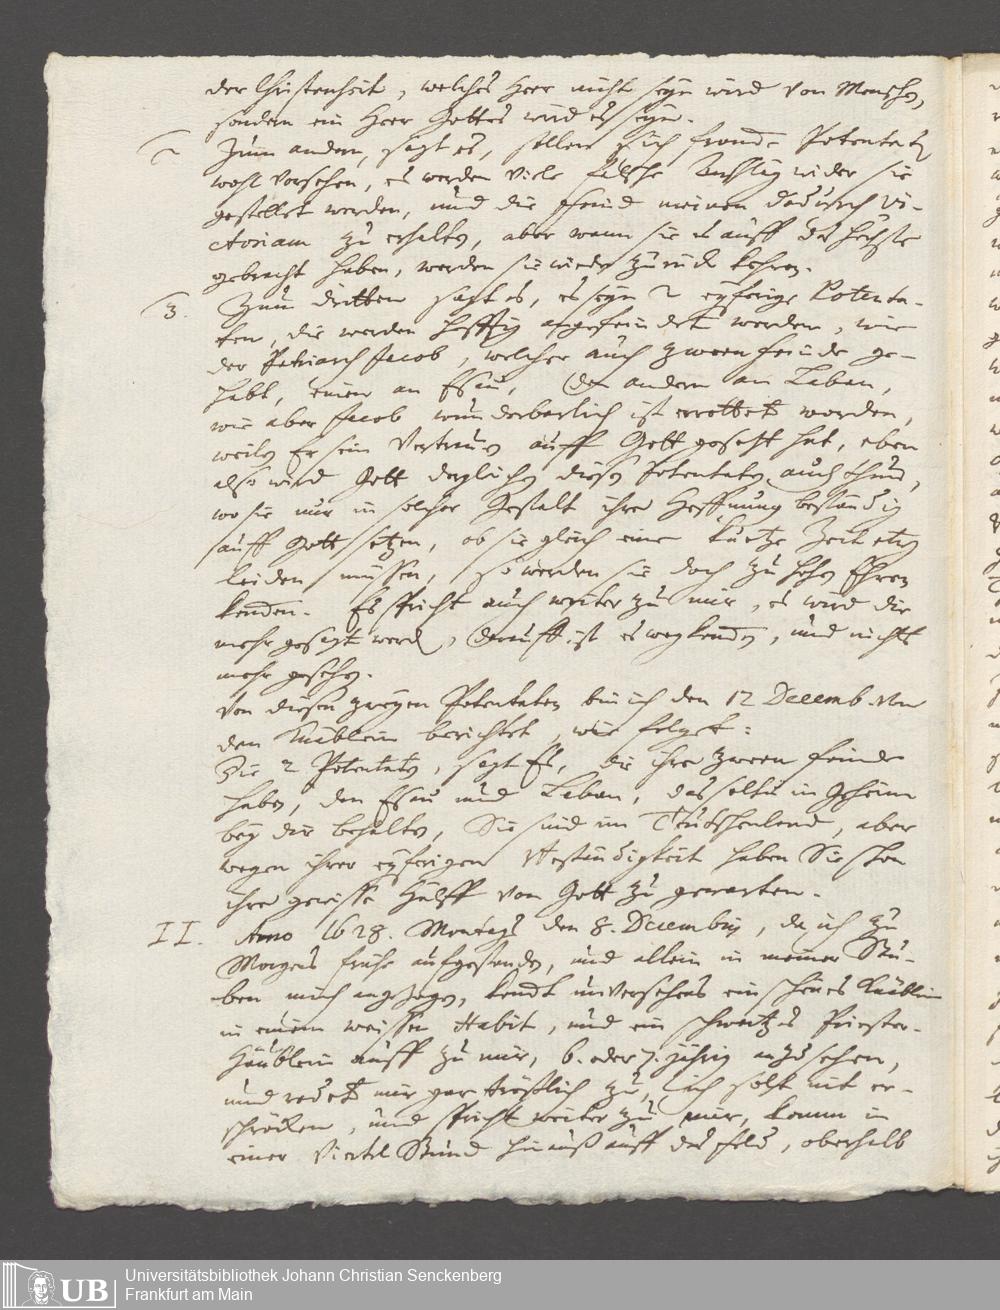 der Christenheit, welches Heer nicht seyn wird von Menschen,
sondern ein Heer Gottes wird es seyn.
2 Zum andern, sagt es, sollen sich fromme Potentaten
wohl vorsehen, es werden viele falsche Anschläg wider sie
gestellet werden, und die Feind meinen dadurch vi-
ctoriam zu erhalten, aber wann sie es auff das höchste
gebracht haben, werden sie wieder zurück kehren.
3. Zum dritten sagt es, es seyn 2 eyferige Potenta-
ten, die werden hefftig angefeindet werden, wie
der Patriarch Jacob, welcher auch zween feinde ge-
habt, einen an Esau, den andern an Laban,
wie aber Jacob wunderbarlich ist errettet worden,
weilen Er sein Vertrauen auff Gott gesetzt hat, eben
also wird Gott dergleichen diesen Potentaten auch thun,
wo sie nur in solcher Gestalt ihre Hoffnung beständig
auff Gott setzen, ob sie gleich eine kurtze Zeit etwas
leiden müssen, so werden sie doch zu hohen Ehren
kommen. Es spricht auch weiter zu mir, es wird dir
mehr gesagt werden, darauff ist es weg kommen, und nichts
mehr gesehen.
Von diesen zweyen Potentaten bin ich den 12 Decemb. von
dem Knäblein berichtet, wie folget:
Die 2 Potentaten, sagt Es, die ihre zween feinde
haben, den Esau und Laban, das soltu in Geheim
bey dir behalten, Sie sind im Teutschenland, aber
wegen ihrer eyferigen Beständigkeit haben Sie schon
ihre gewisse Hülff von Gott zu gewarten.
II. Anno 1628. Montags den 8. Decembris, da ich zu
Morgens frühe aufgestanden, und allein in meiner Stu-
ben mich angezogen, kommt unversehens ein schönes Knäblein
in einem weissen Habit, und ein schwartzes Priester-
Häublein auff zu mir, 6. oder 7. jährig anzusehen,
und redet mir gar tröstlich zu, ich solt nit er-
schröcken, und spricht weiter zu mir, komm in
einer Viertel Stund hinauß auff das feld, oberhalb
UB
Universitätsbibliothek Johann Christian Senckenberg
Frankfurt am Main